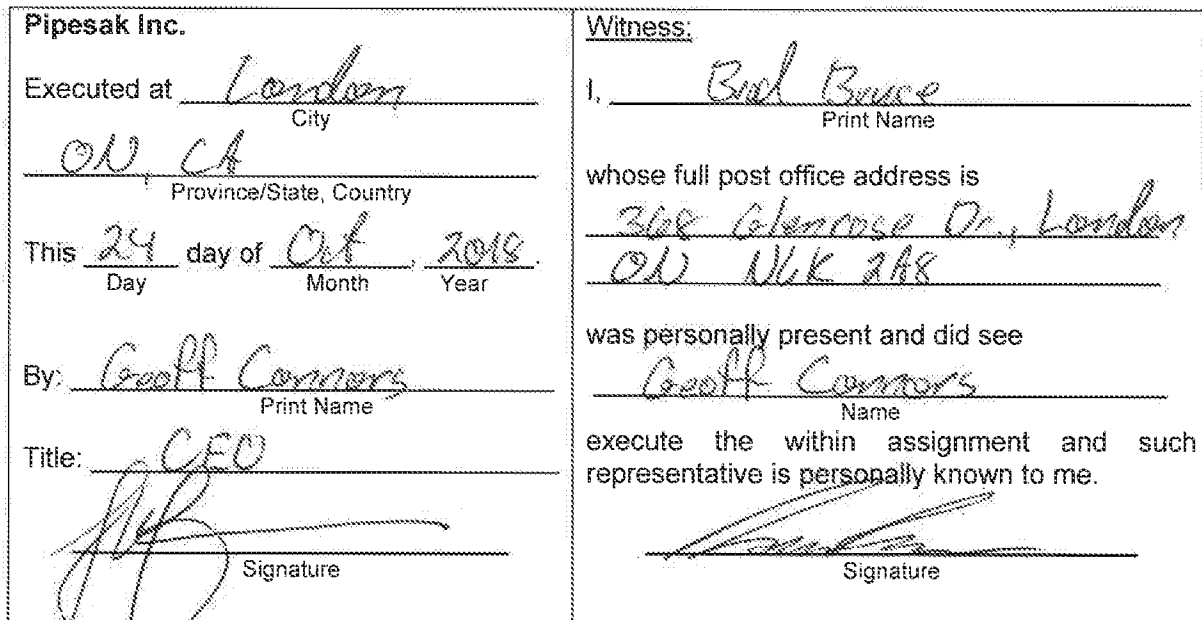 Pipesak Inc.
Executed at London
City
ON, CA
Province/State, Country
This 24 day of Oct, 2018.
Day Month Year
By: Geoff Connors
Print Name
Title: CEO
Signature
Witness:
I, Brad Bruce
Print Name
whose full post office address is
368 Glenrose Dr., London
ON N6K 2A8
was personally present and did see
Geoff Connors
Name
execute the within assignment and such
representative is personally known to me.
Signature